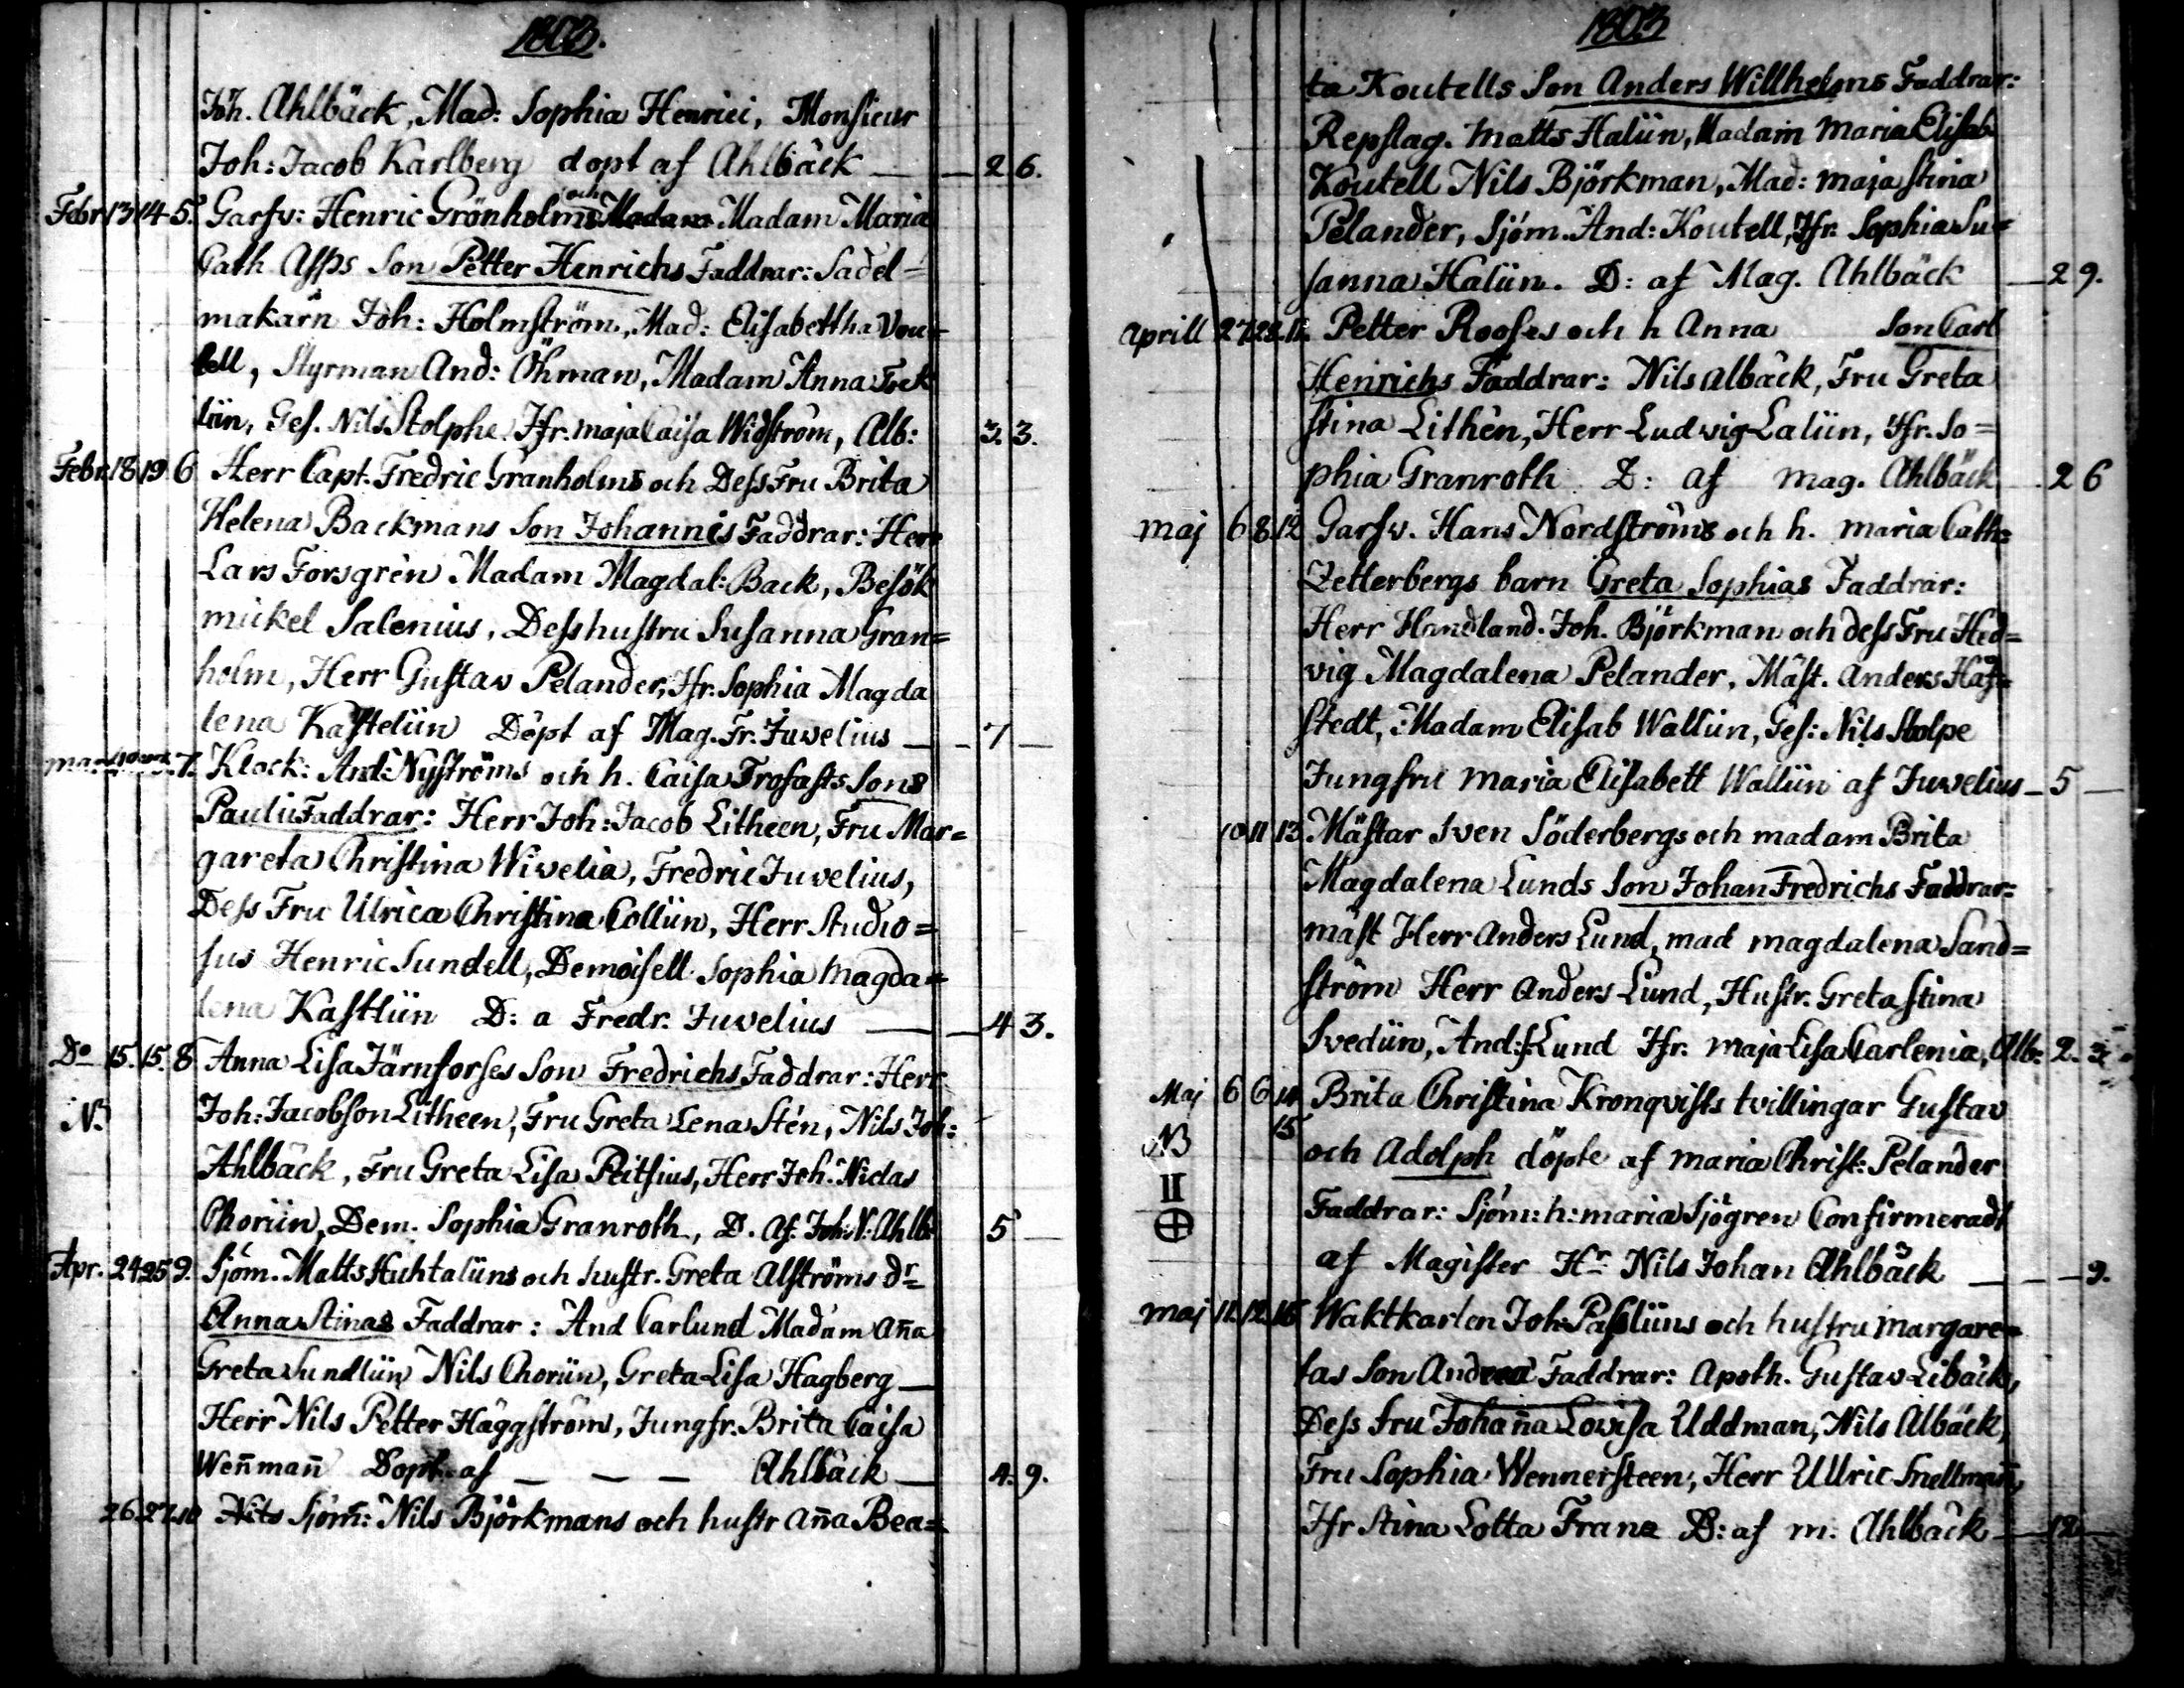 1803.
Joh. Ahlbäck, Mad: Sophia Henrici, Monsieur
Joh: Jacob Karlberg dopt af Ahlbäck — 2 6.
Febr 13 14 5. Garfv: Henric Grönholms och Madam Maria
Cath Asps Son Petter Henrichs Faddrar: Sadel=
makarn Joh: Holmström, Mad: Elisabettha
Styrman And: Öhman, Madam Anna
Ges. Nils Stolphe. Jfr. maja Caisa Widström, Alb: 3. 3.
Febr. 18 19 6 Herr Capt. Fredric Granholms och Dess Fru Brita
Helena Backmans Son Johannis Faddrar: Herr
Lars Forsgrén Madam Magdal: Back, Besök
mickel Salenius, Dess hustru Susanna Gran=
holm, Herr Gustav Pelander, Jfr. Sophia Magda
lena Kastelün Döpt af Mag. Fr. Juvelius — 7 —
7. Klock: And: Nyströms och h. Caisa Trofasts Sons
Pauli Faddrar: Herr Joh: Jacob Litheen, Fru Mar=
gareta Christina Wivelia, Fredric Juvelius,
Dess Fru Ulrica Christina Collün, Herr Studio=
sus Henric Sundell, Demoisell Sophia Magda=
lena Kastlün D: a Fredr. Juvelius — 4 3.
Do 15. 15. 8 Anna Lisa Järnforses Son Fredrichs Faddrar: Herr
N. Joh: Jacobson Litheen, Fru Greta Lena Stén, Nils Joh:
Ahlbäck, Fru Greta Lisa Peitsius, Herr Joh. Niclas
Chorün, Dem: Sophia Granroth, D. af. Joh: N: Ahlb: 5 —
Apr. 24 25 9. Sjöm. Matts Huhtalüns och hustr. Greta Alströms dr=
Anna Stinas Faddrar: And Carlund Madam Aña
Greta Sundlün Nils Chorün, Greta Lisa Hagberg —
Herr Nils Petter Häggströms, Jungfr. Brita Caisa
Weñmañ Dopt af — — — Ahlbäck — 4. 9.
26. 27. 10 Sjöm: Nils Björkmans och hustr aña Bea=
1803
ta Koutells Son Anders Willhelms Faddrar:
Repslag. Matts Halün, Madam Maria Elisab
Koutell Nils Björkman, Mad: maja stina
Pelander, Sjöm. And: Koutell, Jfr. Sophia Su=
sanna Halün. D: af Mag. Ahlbäck — 2 9.
Aprill 27. 28. 11. Petter Rooses och h Anna Son Carl
Henrichs Faddrar: Nils Albäck, Fru Greta
stina Lithén, Herr Ludvig Lalün, Jfr. So=
phia Granroth D: af mag. Ahlbäck 2 6
maj 6 8 12 Garfv. Hans Nordströms och h. maria Cath=
Zetterbergs barn Greta Sophias Faddrar:
Herr Handland. Joh. Björkman och dess Fru Hed=
vig Magdalena Pelander, Mäst. Anders Häg=
stedt, Madam Elisab Wallün, Ges: Nils Stolpe
Jungfru maria Elisabett Wallün af Juvelius — 5 —
10 11 13. Mästar Sven Söderbergs och madam Brita
Magdalena Lunds Son Johan Fredrichs Faddrar=
mäst Herr Anders Lund, mad magdalena Sand=
ström Herr Anders Lund, Hustr. Greta stina
Svedün, And: Lund Jfr. maja Lisa Carlenia, Alb: 2. 3.
Maj 6 6 14 Brita Christina Kronqvists tvillingar Gustav
NB 15 och Adolph döpte af maria Christ: Pelander
II Faddrar: Sjöm: h: maria Sjögren Confirmeradt
⊕ af Magister Hr Nils Johan Ahlbäck — — 9.
maj 11. 12. 16 Waktkarlen Joh: Paslüns och hustru margare=
tas Son Andrea Faddrar: Apoth. Gustav Libäck,
Dess fru Johaña Lovisa Uddman, Nils Albäck,
Fru Sophia Wennersteen, Herr Ullric Snellmañ,
Jfr Stina Lotta Franz D: af m. Ahlbäck — 12 —